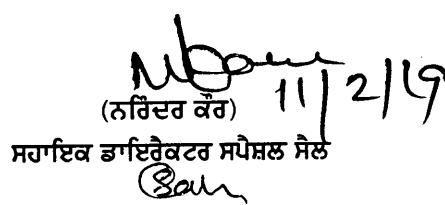 11/2/19
(ਨਰਿੰਦਰ ਕੌਰ)
ਸਹਾਇਕ ਡਾਇਰੈਕਟਰ ਸਪੈਸ਼ਲ ਸੈਲ